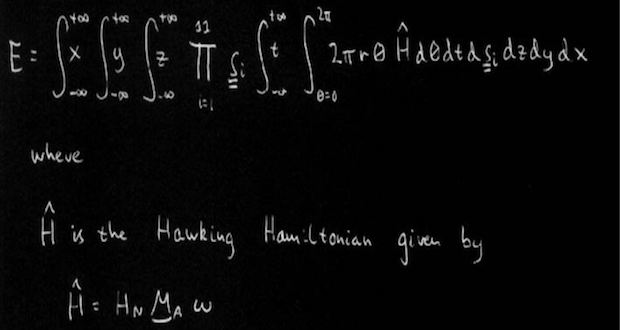 E = ∫_{-∞}^{+∞} x ∫_{-∞}^{+∞} y ∫_{-∞}^{+∞} z ∏_{i=1}^{11} s̳_i ∫_{-∞}^{+∞} t ∫_{θ=0}^{2π} 2πrθ Ĥ dθdtds̳_i dzdydx
where
Ĥ is the Hawking Hamiltonian given by
Ĥ = H_N M̲_A ω